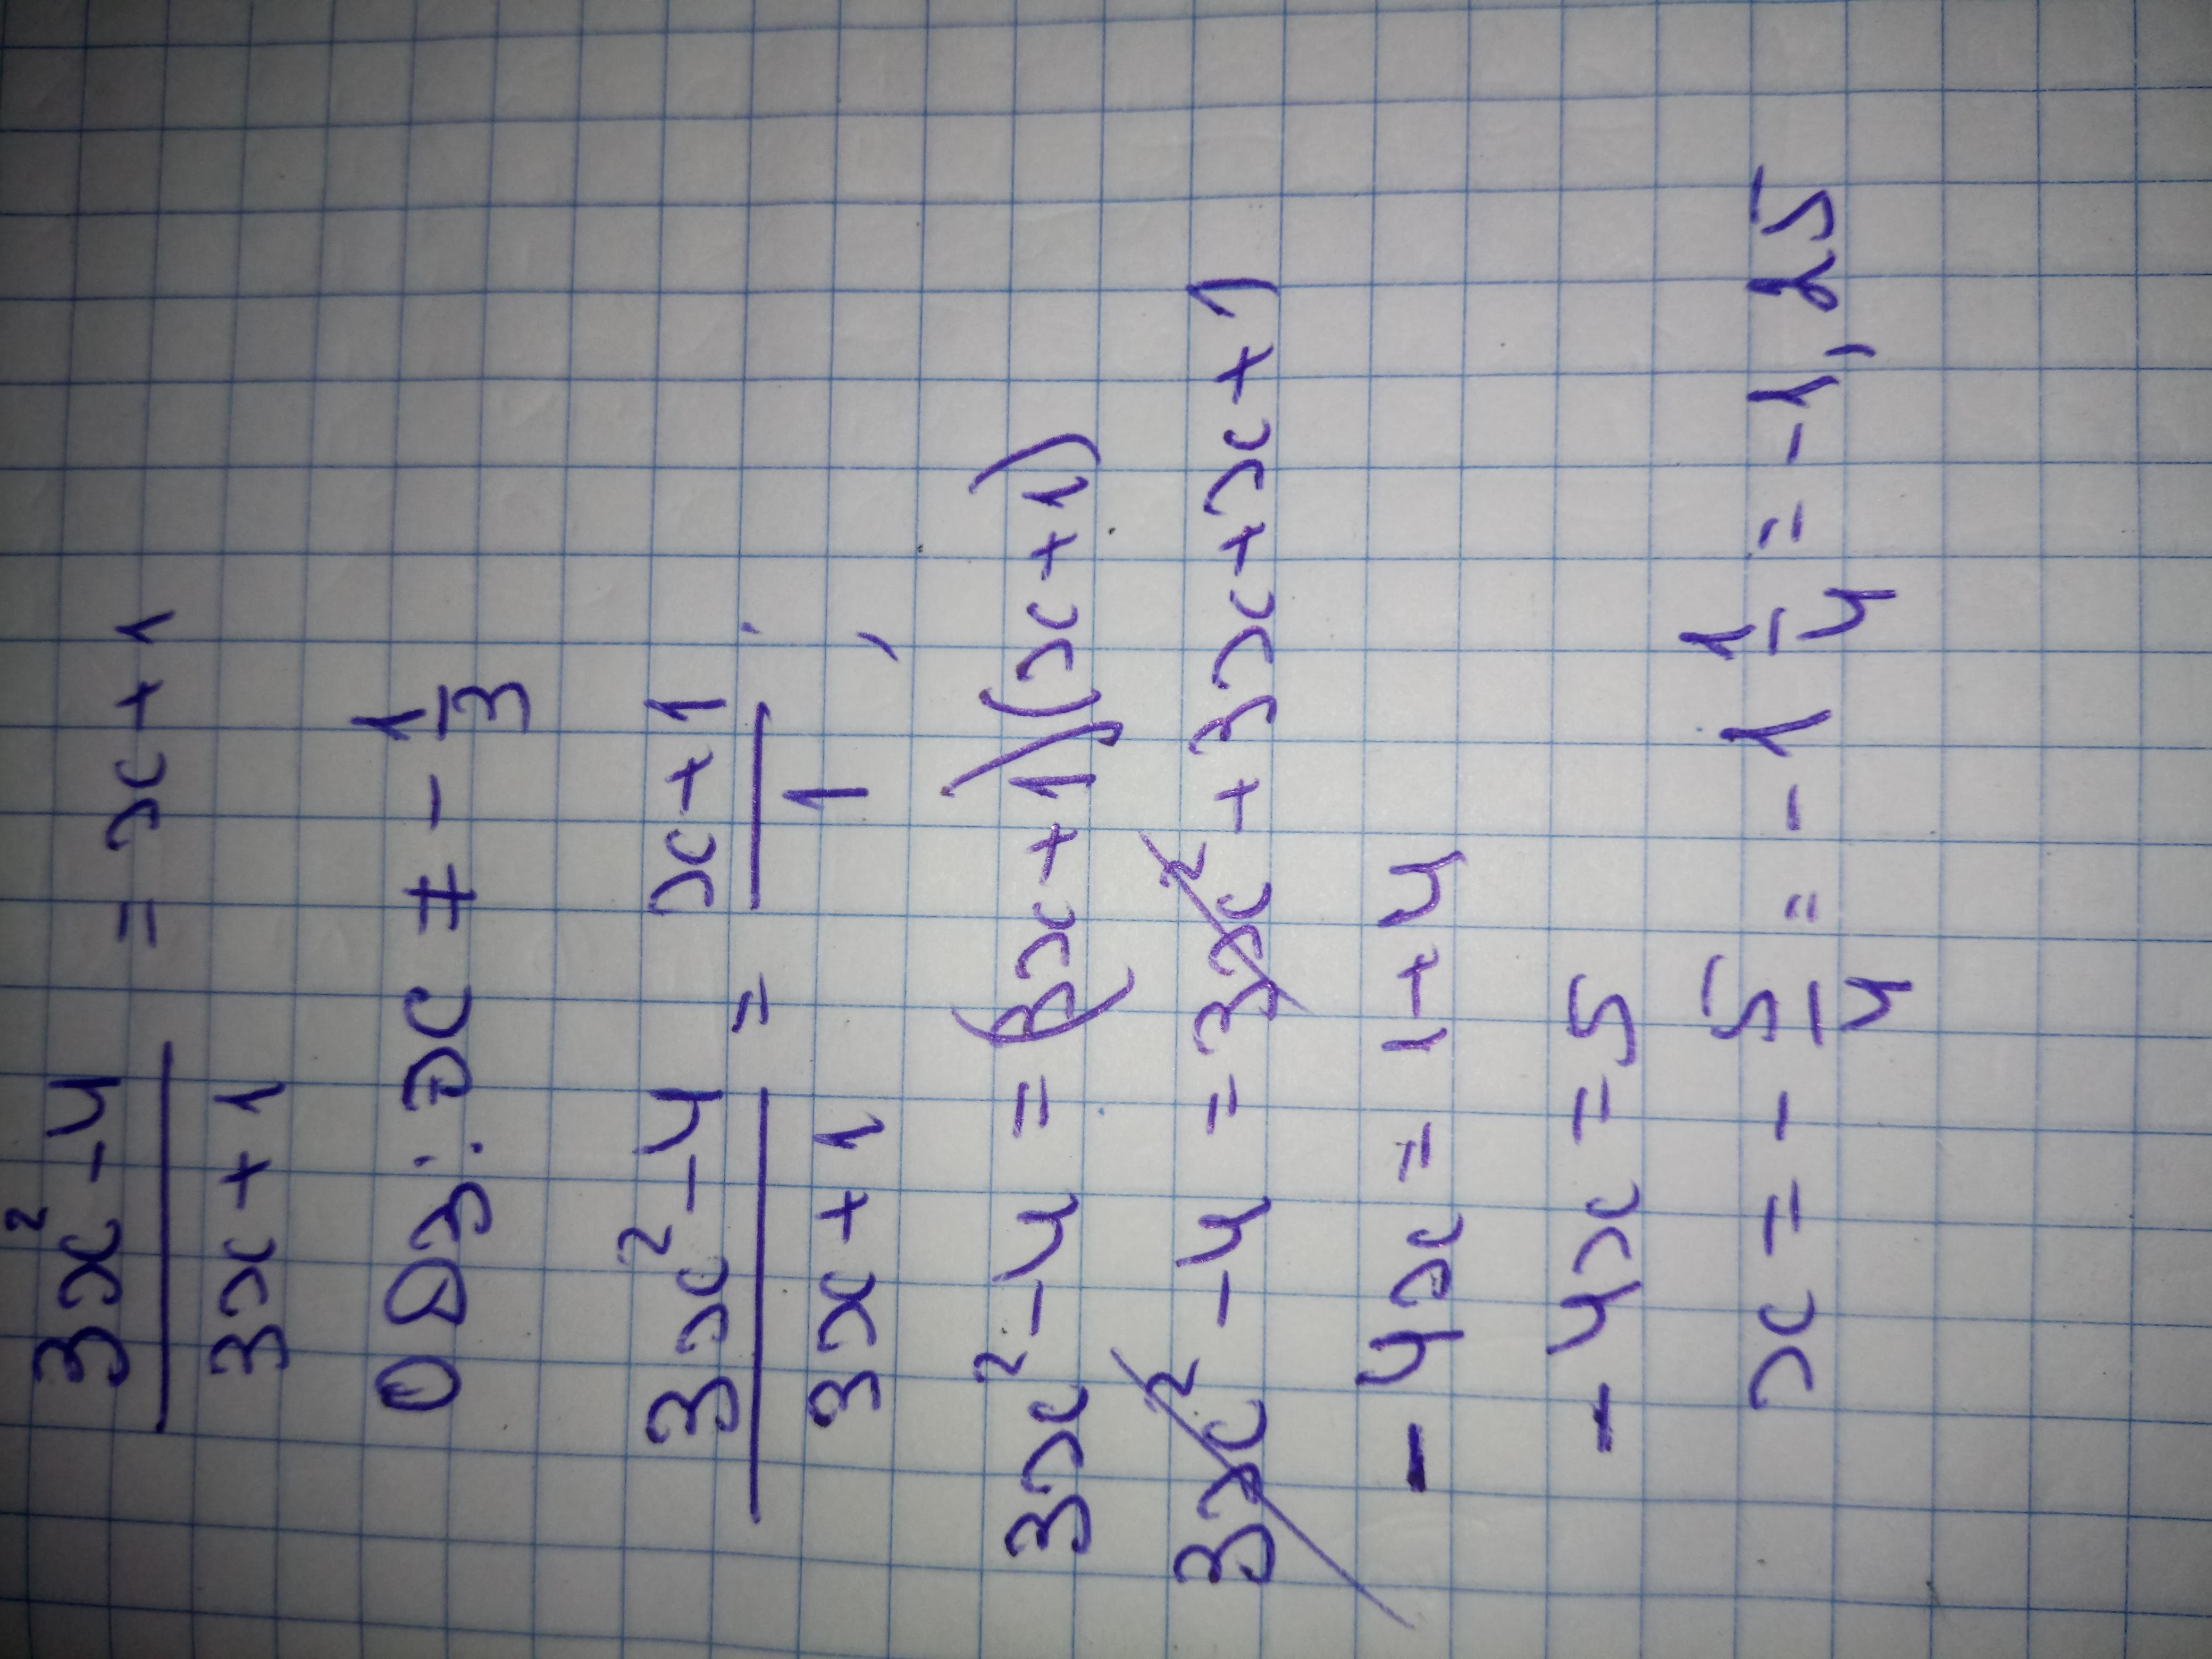 (3x²-4)/(3x+1) = x+1
ОДЗ: x ≠ -1/3
(3x²-4)/(3x+1) = (x+1)/1,
3x²-4 = (3x+1)(x+1)
3x²-4 = 3x²+3x+x+1
-4x = 1+4
-4x = 5
x = -5/4 = -1 1/4 = -1,25